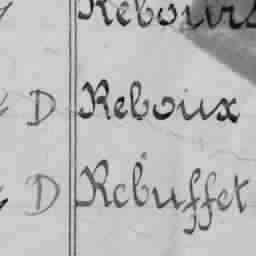 Rebours
D Reboux
D Rebuffet